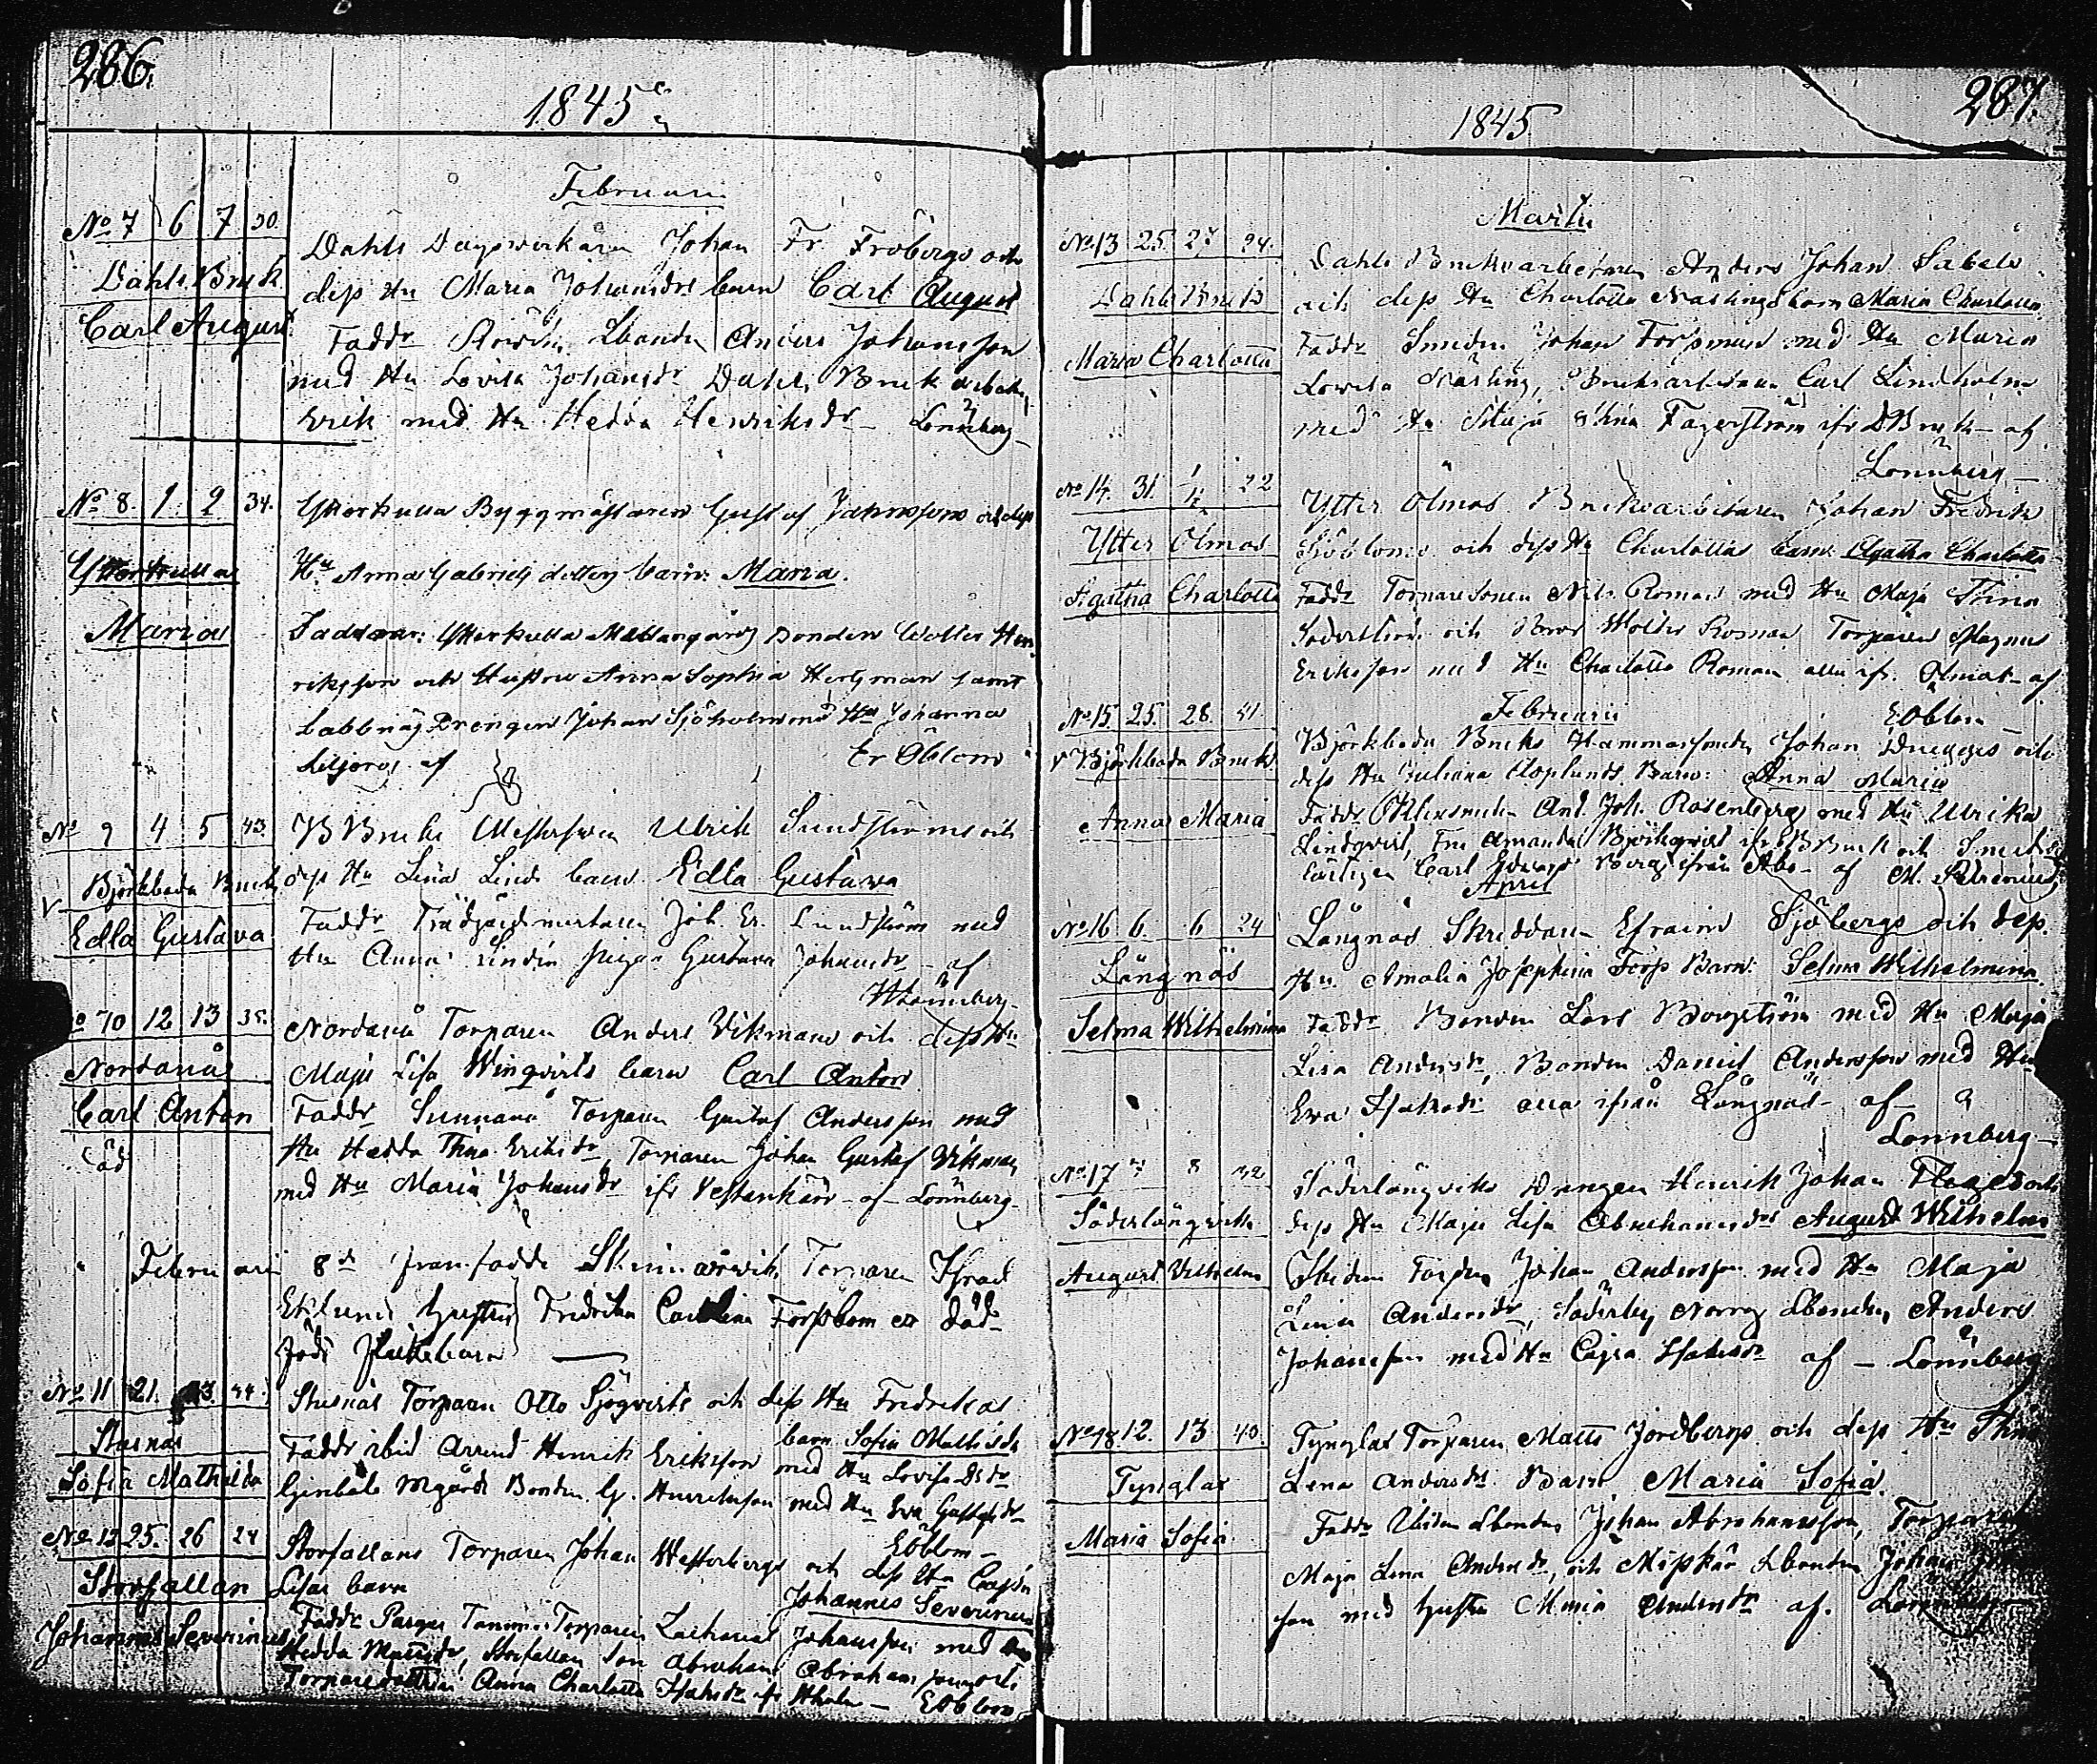 286.
1845
Februari
No 7 6 7 30.
Dahls Bruk
Carl August
Dahls Dagsverkaren Johan Fr. Frobergs och
dess Hu Maria Johansdrs barn Carl August
Faddr Anders Johansson
med Hu Lovisa Johansdr Dahls Bruk arbet.
Erik med Hu Hedda Henriksdr – Lönnberg –
No 8. 1. 2 34.
Ytterkulla
Maria
Ytterkulla Byggmästaren Gustaf Jahnssons och dess
Hu Anna Gabrielsdotters barn: Maria.
Faddrar: Ytterkulla Mellangårds Bonden Wolter Hen-
riksson och Hustru Anna Sophia Hertzman samt
Labbnäs Drengen Johan Sjöholm med Hu Johanna
af Er Öblom
No 9 4 5 43.
Björkboda Bruk
Edla Gustava
B Bruks Mestersven Ulrik Sundströms och
dess Hu Lina Linds barn Edla Gustava
Faddr Trädgårdmästaren Joh. Er. Lundström med
Hu Anna Lindén pigan Gustava Johansdr – af
Lönnberg –
No 10 12 13 35.
Nordanå
Carl Anton
öd
Nordanå Torparen Anders Wikmans och dess Hu
Maja Lisa Winqvists barn Carl Anton
Faddr Sunnanå Torparen Gustaf Andersson med
Hu Hedda Thina Eriksdr, Torparen Johan Gustaf Vikman
med Hu Maria Johansdr ifr Vestankärr – af – Lönnberg –
Februari 8de framfödde Skinnarvik Torparen Israel
Eklunds hustru Fredrika Carolina Forsblom ett död-
född flickebarn —
No 11 21. 23. 44.
Stusnäs
Sofia Mathilda
Stusnäs Torparen Otto Sjöqvists och dess Hu Fredrikas
barn Sofia Mathilda
Faddr ibid Arrend Henrik Eriksson med Hu Lovisa
Ginböle Bonden G. Henriksson med Hu Eva Gustafsdr
EÖblom –
No 12 25. 26 24
Storfallan
Johannes Severinus
Storfallans Torparen Johan Westerbergs och dess Hu Cajsa
Lisas barn Johannes Severinus
Faddr Pargas Torparen Zacharias Johansson med Hu
Hedda Mattsdr, Storfallan Son Abraham Abrahamsson och
Torparedottren Anna Charlotta Isaksdr ifr – EÖblom
287.
1845
Martii
No 13 25. 27 24.
Dahls Bruk
Maria Charlotta
Dahls Bruksarbetaren Anders Johan Sabels
och dess Hu Charlotta Näslings barn Maria Charlotta.
Faddr Smeden Johan Forsman med Hu Maria
Lovisa Näsling, Bruksarbetaren Carl Lindholm
med Hu Maja Stina Fagerström ifr DBruk – af
Lönnberg –
No 14. 31. 1/4 22
Ytter Ölmos
Agatha Charlotta
Ytter Ölmos Bruksarbetaren Johan Fredrik
Sjöbloms och dess Hu Charlottas barn Agatha Charlotta
Faddr Torparesonen Nils Roman med Hu Maja Stina
Söderström och Bror Wolter Roman Torparen Magnus
Eriksson med Hu Charlotta Roman alla ifr. Ölmos – af
EÖblom –
Februarii
No 15 25. 28. 41.
Björkboda Bruk
Anna Maria
Björkboda Bruks Hammarsmeden Johan Dueggs och
dess Hu Juliana Asplunds Barn: Anna Maria
Faddr And. Joh. Rosenberg med Hu Ulrika
Lindqvist, Fru Amanda Björkqvist ifr BBruk och Smeds
lärlingen Carl Edvard Berg ifrån Åbo – af M.
April
No 16 6. 6 24
Långnäs
Selma Wilhelmina
Långnäs Skreddaren Efraim Sjöbergs och dess
Hu Amalia Josephina Forss Barn: Selma Wilhelmina.
Faddr Bonden Lars Bergström med Hu Maja
Lisa Andersdr, Bonden Daniel Andersson med Hu
Eva Isaksdr alla ifrån Långnäs – af –
Lönnberg –
No 17 7 8 32
Söderlångvik
August Vilhelm
Söderlångviks Drengen Henrik Johan och
dess Hu Maja Lisa Abrahamsdrs August Wilhelm
Johan Andersson med Hu Maja
Lina Andersdr, Söderby Norrg Lbonden Anders
Johansson med Hu Cajsa Isaksdr af – Lönnberg
No 18. 12. 13 40.
Tynglax
Maria Sofia
Tynglax Torparen Matts Jordbergs och dess Hu Stina
Lena Andersdrs Barn Maria Sofia.
Faddr Lbonden Johan Abrahamsson,
Maja Lena Andersdr, och Misskär Lbonden Johan
son med hustru Maria Andersdr af. Lönnberg